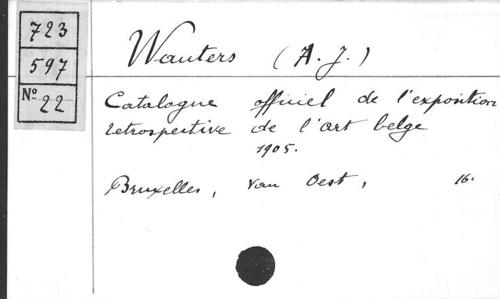 723
597
Nº 22
Wauters (A. J.)
Catalogue officiel de l'exposition
retrospective de l'art belge
1905.
Bruxelles, van Oest, 16º